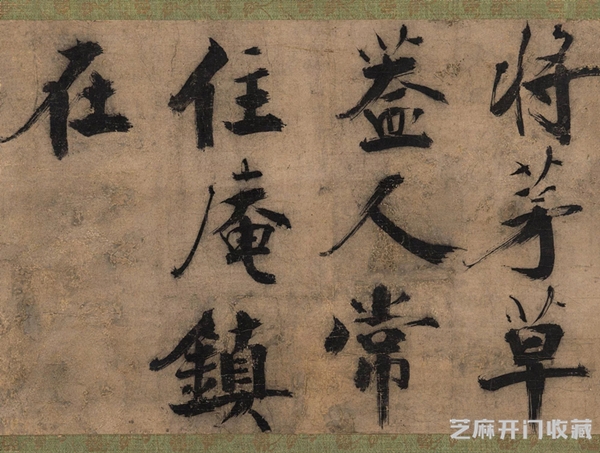 将茅草
盖人常
住庵鎮
在
芝麻开门收藏